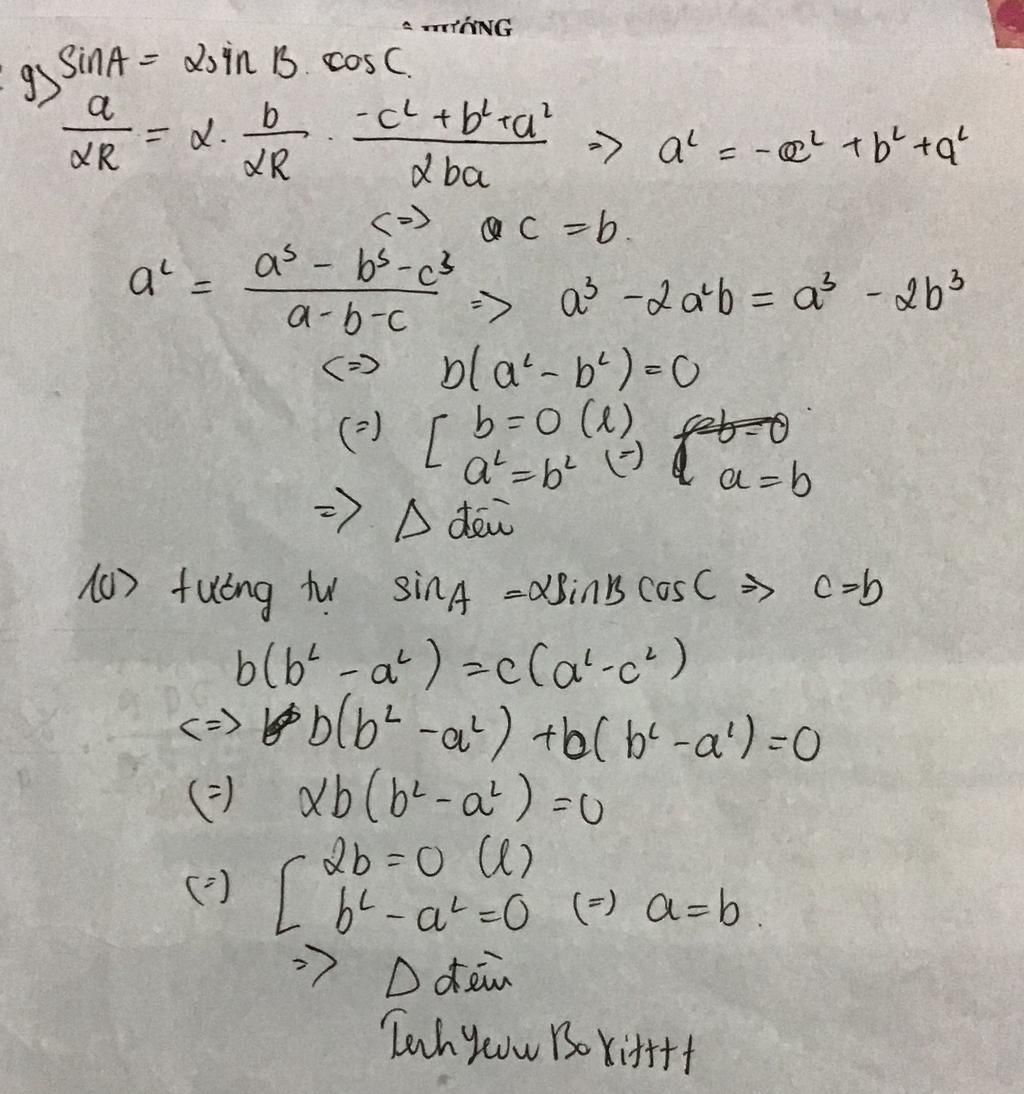 HƯỚNG
9> sinA = 2sin B. cos C.
a/2R = 2. b/2R . (-c² + b² + a²)/2ba => a² = -c² + b² + a²
<=> c = b.
a² = (a³ - b³ - c³)/(a - b - c) => a³ - 2a²b = a³ - 2b³
<=> b(a² - b²) = 0
(=) [ b = 0 (l)
a² = b² (=) a = b
=> Δ đều
10> tương tự sinA = 2sinB cosC => c = b
b(b² - a²) = c(a² - c²)
<=> b(b² - a²) + b(b² - a²) = 0
(=) 2b(b² - a²) = 0
(=) [ 2b = 0 (l)
b² - a² = 0 (=) a = b.
=> Δ đều